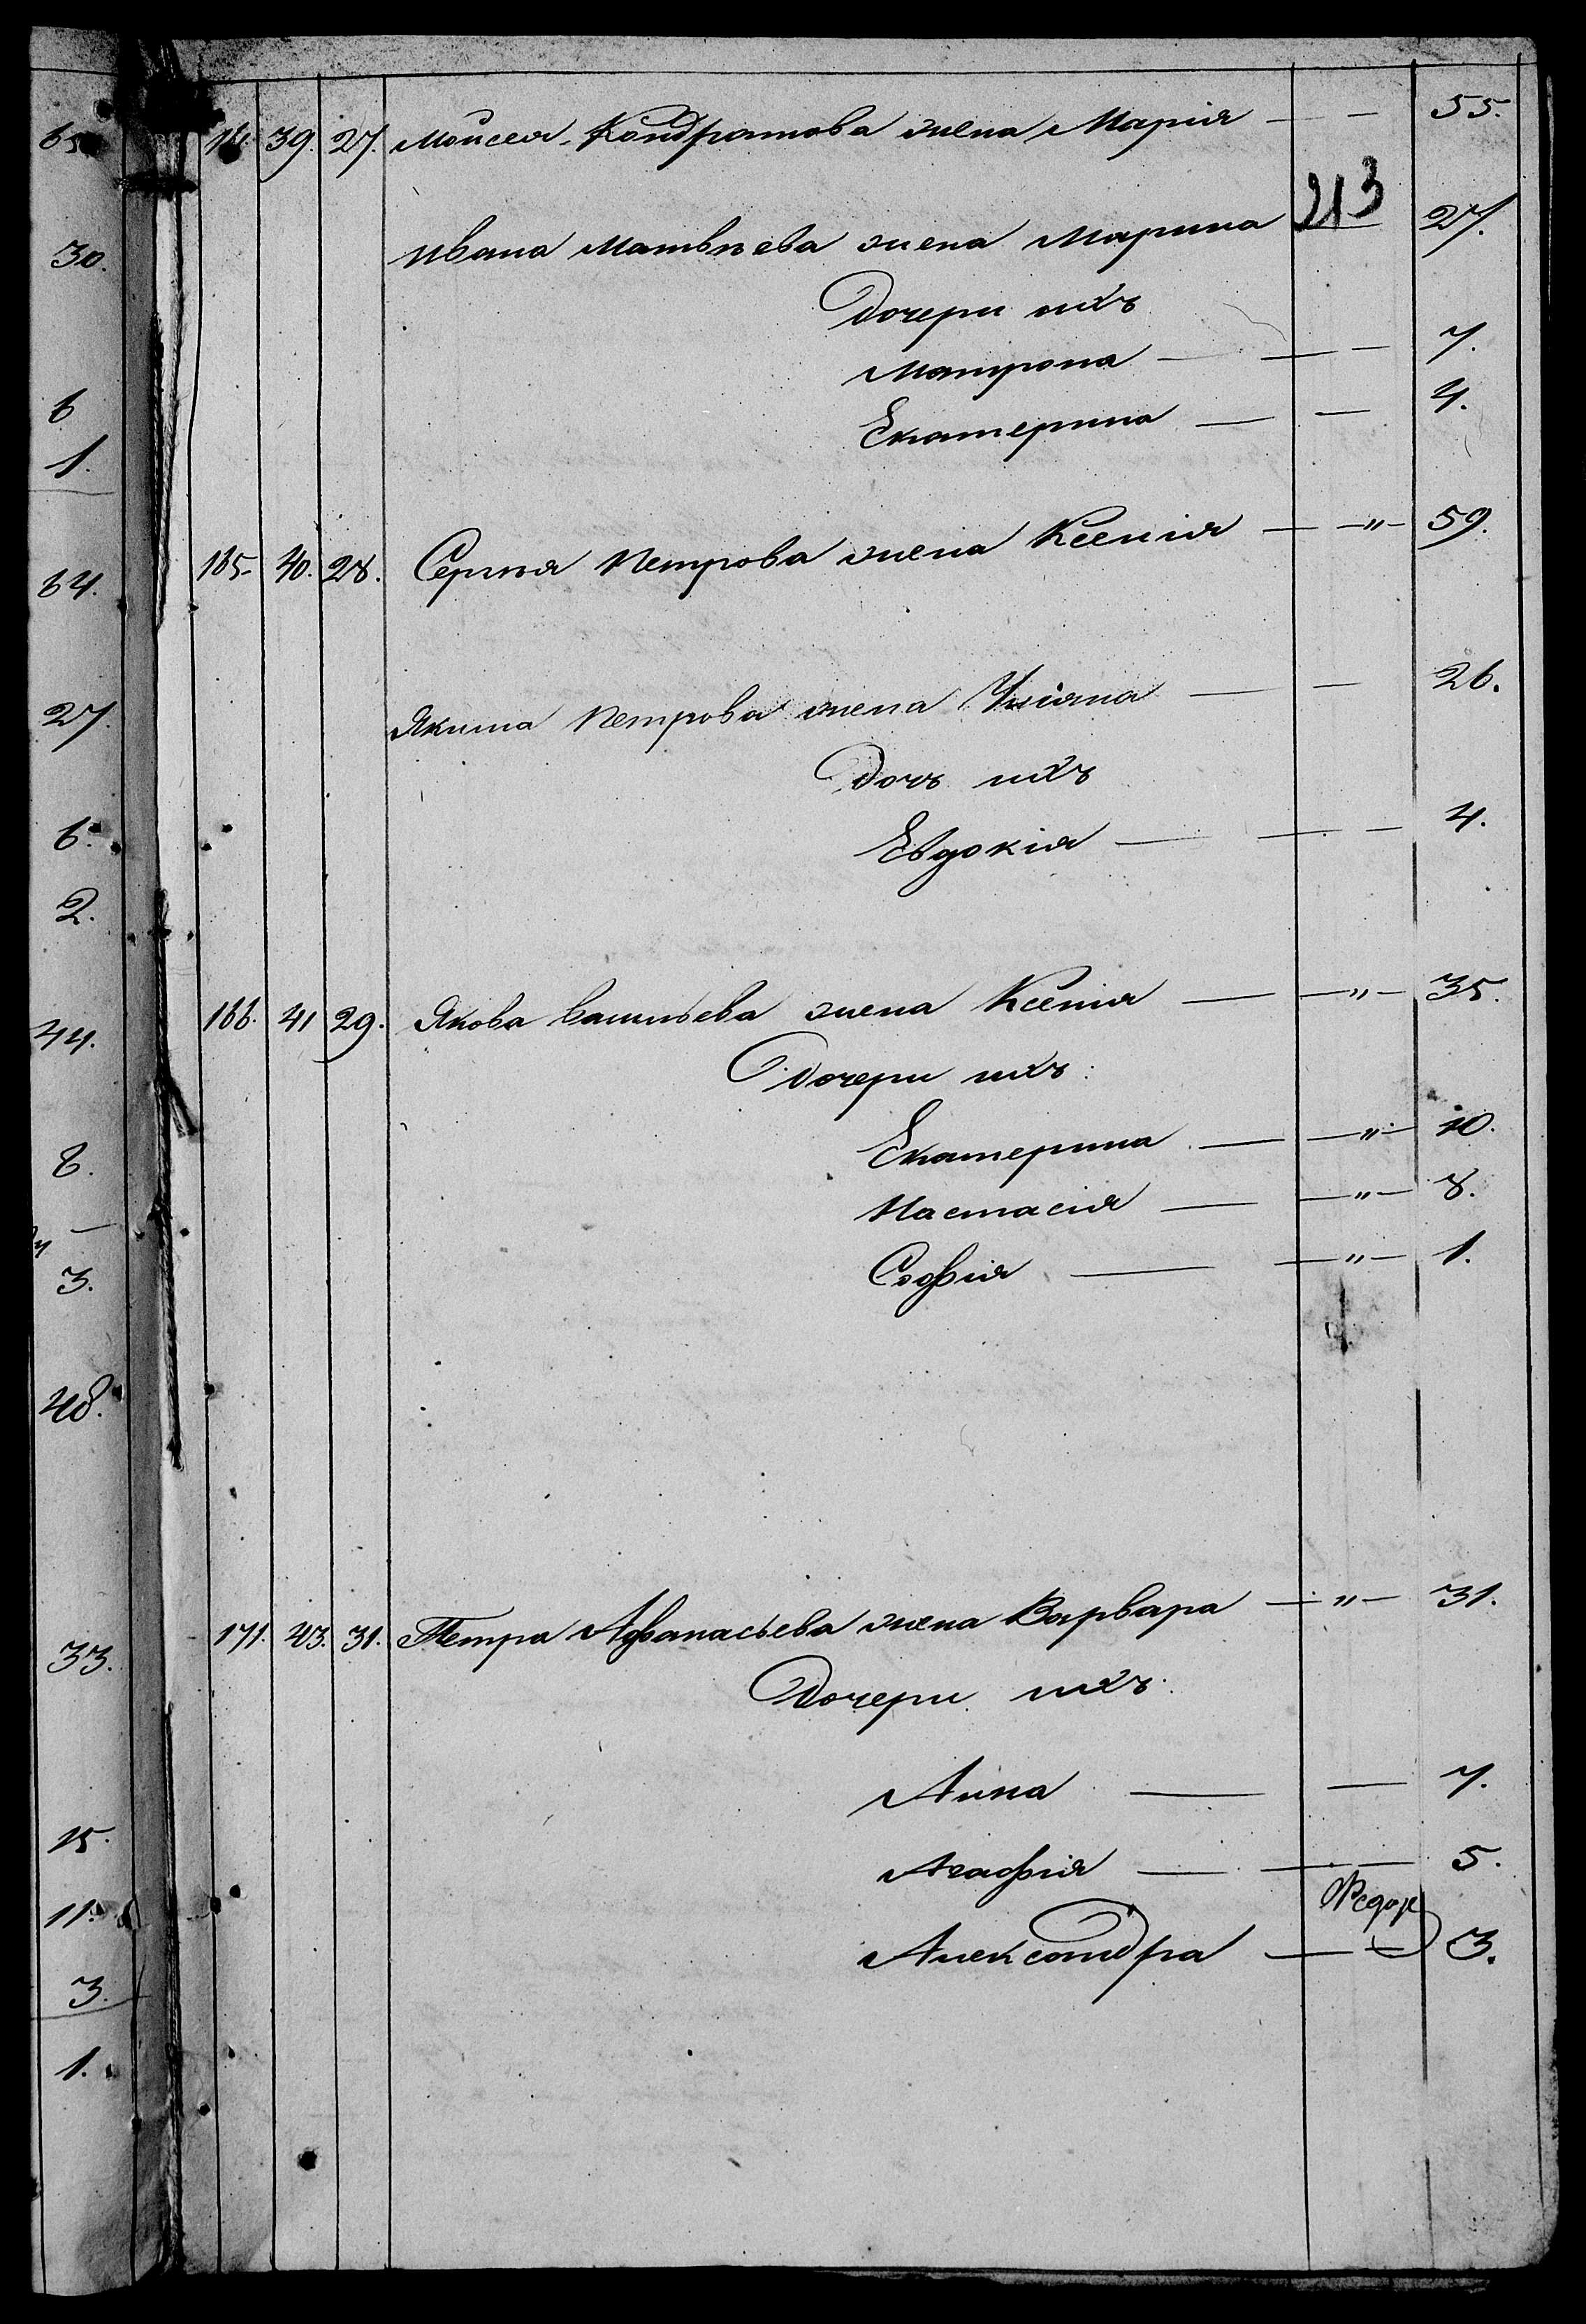 65
30.
6
1.
64.
27
6.
2.
44.
8.
3.
48.
33.
15.
11.
3.
1.
39. 27. Моисея Кондратова жена Марія — — 55.
213
Ивана Матвѣева жена Марина — 27.
Дочери ихъ
Матрона — — 7.
Екатерина — — 4.
165. 40. 28. Сергѣя Петрова жена Ксенія — —"— 59.
Якима Петрова жена Уліяна — — 26.
Дочь ихъ
Евдокія — — 4.
166. 41 29. Якова Васильева жена Ксенія — —"— 35.
Дочери ихъ:
Екатерина — —"— 10.
Настасія — —"— 8.
Софія — —"— 1.
171. 43. 31. Петра Афанасьева жена Варвара — " — 31.
Дочери ихъ:
Анна — — 7.
Агафія — — 5.
Александра — — 3.